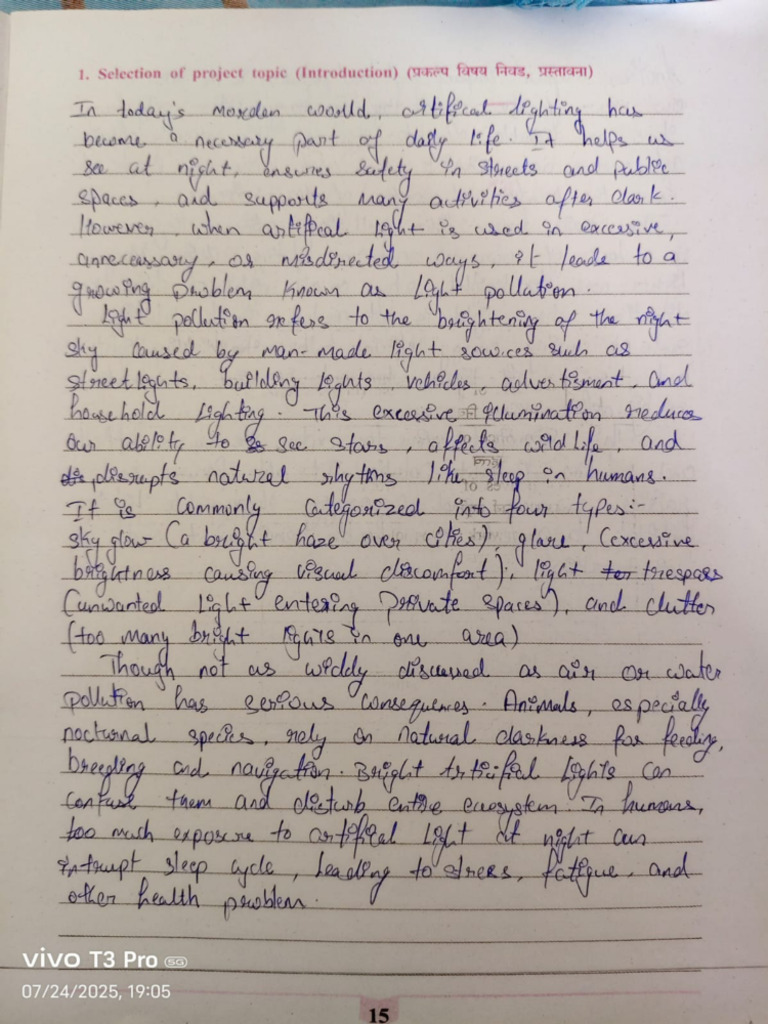 1. Selection of project topic (Introduction) (प्रकल्प विषय निवड, प्रस्तावना)
In today's morden world, artifical lighting has
become a necessary part of daily life. It helps us
see at night, ensures safety in streets and public
spaces, and supports many activities after dark.
However, when artifical light is used in excessive,
unnecessary, or misdirected ways, it leads to a
growing problem known as light pollution.
Light pollution refers to the brightening of the night
sky caused by man-made light sources such as
streetlights, building lights, vehicles, advertisment, and
household lighting. This excessive illumination reduces
our ability to see stars, affects wildlife, and
disrupts natural rhythms like sleep in humans.
It is commonly categorized into four types:-
sky glow (a bright haze over cities), glare, (excessive
brightness causing visual discomfort), light trespass
(unwanted light entering private spaces), and clutter
(too many bright lights in one area)
Though not as widdy discussed as air or water
pollution has serious consequences. Animals, especially
nocturnal species, rely on natural darkness for feeding,
breeding and navigation. Bright Artificial lights can
confuse them and disturb entire ecosystem. In humans,
too much exposure to artifical light at night can
intrupt sleep cycle, leading to stress, fatigue, and
other health problem.
vivo T3 Pro 5G
07/24/2025, 19:05
15